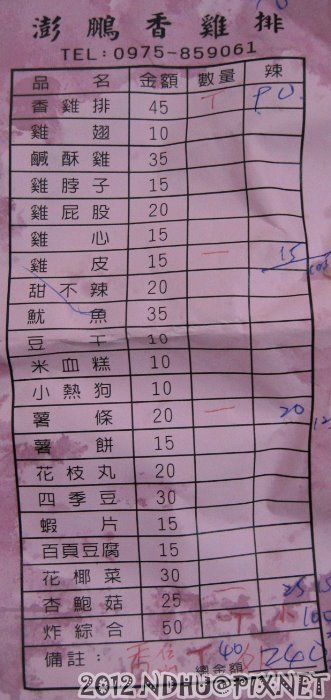 澎鵬香雞排
TEL:0975-859061
品名 金額 數量 辣
香雞排 45 丅 90
雞翅 10
鹹酥雞 35
雞脖子 15
雞屁股 20
雞心 15
雞皮 15 一 15
甜不辣 20
魷魚 35
豆干 10
米血糕 10
小熱狗 10
薯條 20 一 20
薯餅 15
花枝丸 20
四季豆 30
蝦片 15
百頁豆腐 15
花椰菜 30
杏鮑菇 25 一 25
炸綜合 50 丅 小 100
備註: 40 總金額 240
2012-NDHU@PIXNET